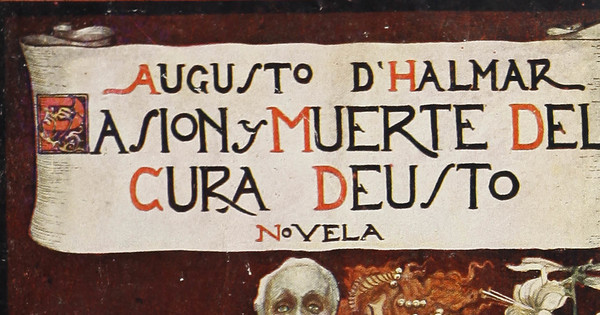 AUGUSTO D'HALMAR
PASION y MUERTE DEL
CURA DEUSTO
NOVELA